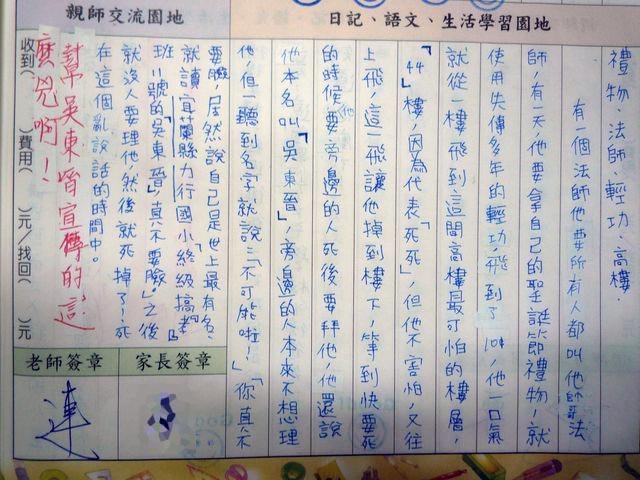 日記、語文、生活學習園地
親師交流園地
禮物、法師、輕功、高樓
有一個法師他要所有人都叫他帥哥法
師,有一天,他要拿自己的聖誕節禮物,就
使用失傳多年的輕功,飛到了101,他一口氣
就從一樓飛到這間高樓最可怕的樓層,
「44」樓,因為代表「死死」,但他不害怕,又往
上飛,這一飛讓他掉到樓下,等到快要死
的時候要他旁邊的人死後要拜他,他還說
他本名叫「吳東晉」,旁邊的人本來不想理
他,但一聽到名字就說:「不可能啦!」「你真不
要臉,居然說自己是世上最有名、
就讀宜蘭縣力行國小終級搞老
班11號的吳東晉」真不要臉」之後
就沒人要理他然後就死掉了!死
在這個亂說話的時間中。
幫吳東晉宣傳的這
麼兇啊!
收到( )費用( )元/找回( )元
家長簽章
老師簽章
連